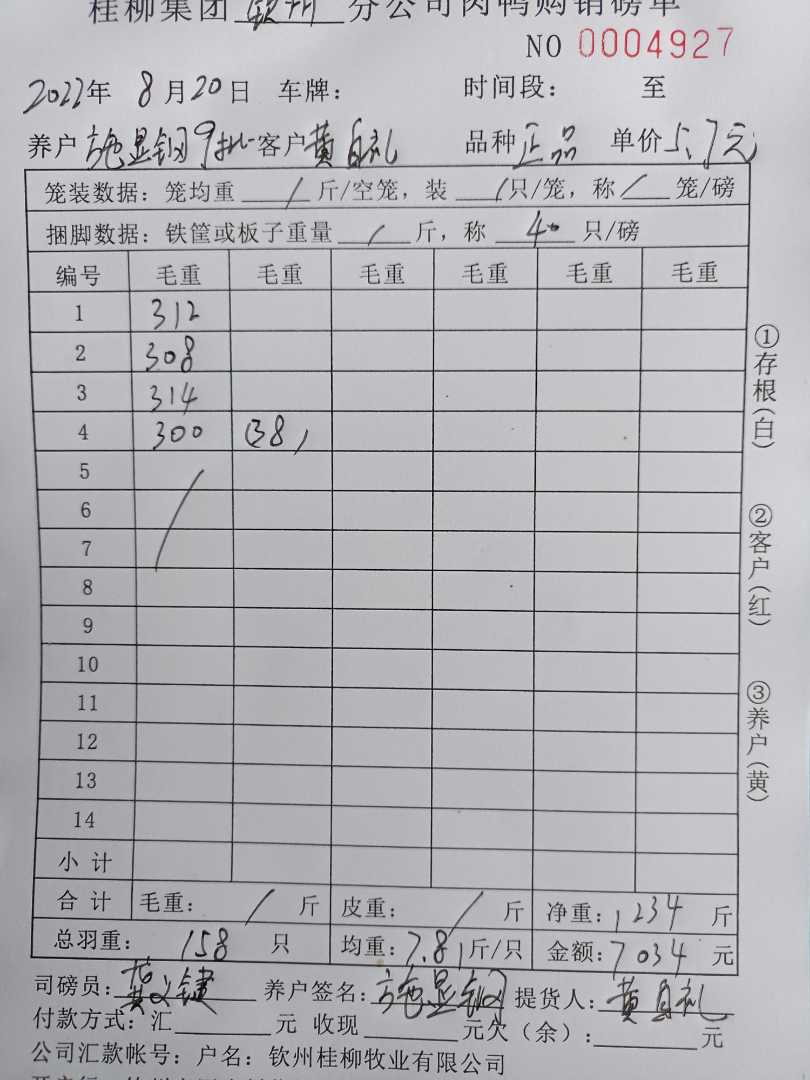 桂柳集团 钦州 分公司肉鸭购销磅单
NO 0004927
2022年 8月20日 车牌： 时间段： 至
养户 施显钢9批 客户 黄自礼 品种 正品 单价 5.7元
笼装数据：笼均重 / 斤/空笼，装 / 只/笼，称 / 笼/磅
捆脚数据：铁筐或板子重量 / 斤，称 40 只/磅
编号 毛重 毛重 毛重 毛重 毛重 毛重
1 312
2 308
3 314
4 300 (38)
5
6
7
8
9
10
11
12
13
14
小计
合计 毛重： / 斤 皮重： / 斤 净重：1234 斤
总羽重： 158 只 均重：7.81斤/只 金额：7034 元
司磅员： 养户签名：施显钢 提货人：黄自礼
付款方式：汇 元 收现 元欠（余）： 元
公司汇款帐号：户名：钦州桂柳牧业有限公司
①存根（白）
②客户（红）
③养户（黄）